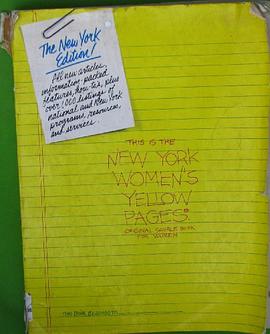 The New York
Edition!
All new articles,
information-packed
features, how-to's, plus
over 1,000 listings of
national and New York
programs, resources,
and services.
THIS IS THE
NEW YORK
WOMEN'S
YELLOW
PAGES®
ORIGINAL SOURCE BOOK
FOR WOMEN
THIS BOOK BELONGS TO